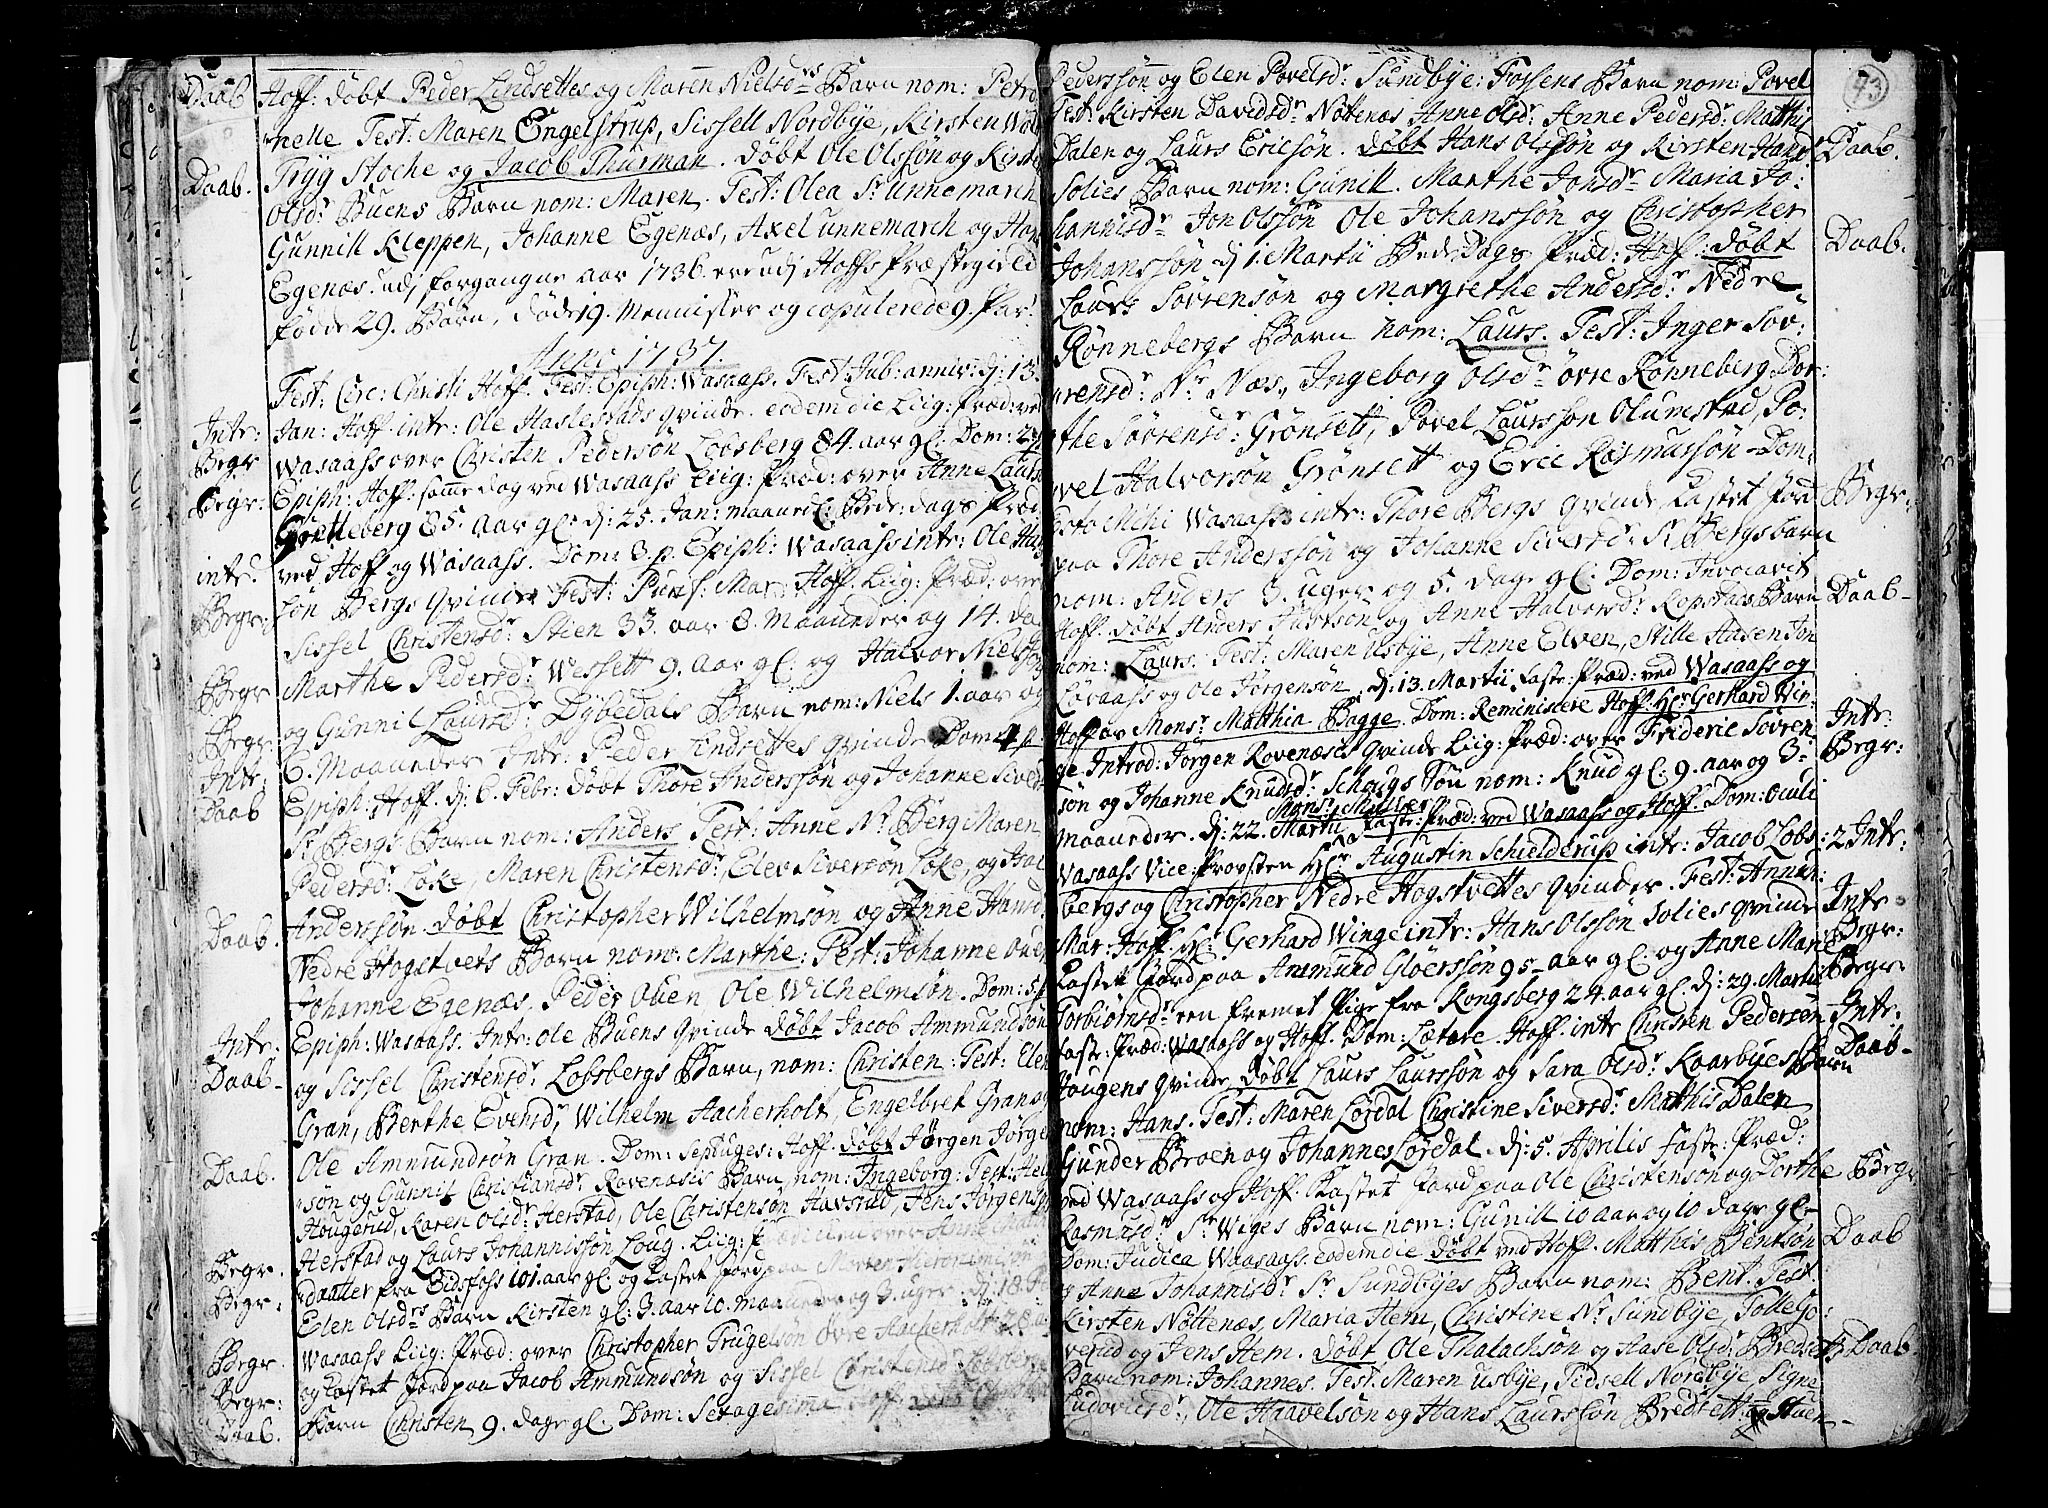 Daab Hoff: døbt Peder Lindsettes og Maren Nielsd:rs Barn nom: Petro
nelle Test: Maren Engelstrup, Sissell Nordbÿe, Kirsten
Trÿg Stoche og Jacob Thurman. døbt Ole Olssøn og Kirst
Daab. Olsd:r Buens Barn nom: Maren. Test: Olea S:r unnemarch
Gunnill Kleppen, Johanne Egenæs, Axel unnemarch og Han
Egenæs. udj forgangne aar 1736. ere udj Hoffs Præstegield
fødde 29. Børn, døde 19. Mennisker og copulerede 9. Par.
Anno 1737.
Fest: Circ: Christi Hoff. Fest: Epiph: Wasaass. Fest: Jub: anniv: dj: 13.
Intr: Jan: Hoff. intr: Ole Haslestads qvinde. eodem die Liig: Præd: ved
Begr Wasaass over Christen Pedersøn Lobsberg 84. aar gl: Dom: 2
Begr: Epiph: Hoff: samme dag ved Wasaass Liig: Præd: over Anne Laurs
Gretteberg 85. Aar gl: dj: 25. Jan: maanedl: Bede: dags Præd
intr. ved Hoff og Wasaass. Dom: 3. p. Epiph: Wasaass intr: Ole Han
søn Bergs qvinde Fest: Purif: Mar: Hoff. Liig: Præd: over
Begr: Sissel Christensd:r Stien 33. aar 8. Maaneder og 14. da
Begr Marthe Pedersd:r Wessett 9. Aar gl: og Halvor Niels
Begr og Gunnil Laursd:r Dÿbedals Barn nom: Niels 1. aar og
Intr: 6. Maaneder Intr: Peder Lindsettes qvinde Dom: 4 p
Daab Epiph: Hoff. dj: 6. Febr: døbt Thore Anderssøn og Johanne Siversd
S:r Bergs Barn nom: Anders Test: Anne N:r Berg Maren
Pedersd:r Løke, Maren Christensd:r, Elev Siversøn Løke, og Hal
Daab. Anderssøn. døbt Christopher Wilhelmsøn og Anne Hansd:
Nedre Hogstvets Barn nom: Marthe: Test: Johanne ouen
Johanne Egenæs, Peder Ouen Ole Wilhelmsøn. Dom: 5 p
Intr. Epiph: Wasaass. Intr: Ole Buens qvinde døbt Jacob Ammundsøn
Daab og Sissel Christensd:r Lobsbergs Barn, nom: Christen: Test: Elen
Gran, Berthe Evensd:r, Wilhelm Aacherholt, Engelbret Gran og
Ole Ammundsøn Gran. Dom: Septuges: Hoff. døbt Jørgen Jørgen
Daab. søn og Gunnil Christiansd:r Rovenæsis Barn, nom: Ingeborg: Test: Hel
Hougerud, Karen Olsd:r Herstad, Ole Christensøn Havsrud, Jens Jørgensøn
Herstad og Laurs Johannissøn Loug. Liig: over Anne
Begr. daatter fra Eidsfoss 101. aar gl: og Kastet Jord paa Morten
Begr: Elen Olsd:rs Barn Kirsten gl: 3. aar 10. maaneder og 3. uger. dj: 18.
Begr. Wasaass Liig: Præd: over Christopher Trugelsøn Øvre Aacherholt 28.
Begr: og Kastet Jord paa Jacob Ammundsøn og Sissel Christensd
Daab. Barn Christen 9. dage gl. Dom: Sexagesimæ Hoff.
73
Pederssøn og Elen Povelsd:r Sundbÿe: Fossens Barn nom: Povel
Test: Kirsten Davidsd:r Nøttenæs Anne Olsd:r Anne Pedersd:r Matthis
Dalen og Laurs Ericsøn. døbt Hans Olssøn og Kirsten Hansd Daab.
Solies Barn nom: Gunill. Marthe Jonsd:r Maria Jo:
hannisd:r Jon Olssøn Ole Johanssøn og Christopher
Johanssøn dj 1. Martii Bede Dags Præd: Hoff: døbt Daab.
Laurs Sørensøn og Margrethe Andersd:r Nedre
Rønnebergs Barn nom: Laurs. Test: Inger Sov:
rensd:r N:r Næs, Ingeborg Olsd:r øvre Rønneberg Dor:
the Sovrensd:r Grønsett, Povel Laurssøn Olumstad, Po:
vel Halvorsøn Grønsett og Eric Rasmussøn Dom:
Esto Mihi Wasaass intr: Thore Bergs qvinde Castet Jord Begr:
paa Thore Anderssøn og Johanne Siversd:r S:r Bergs barn
nom: Anders 3. uger og 5. dage gl: Dom: Invocavit
Hoff. døbt Anders Juulsøn og Anne Halvorsd:r Ropstads Barn Daab
nom: Laurs. Test: Maren Usbÿe, Anne Elven, Sille Aasen Jon
Løvaass og Ole Jørgensøn. dj: 13. Martii Faste: Præd: ved Wasaass og
Hoff av Mons:r Matthia Bagge. Dom: Reminiscere Hoff. Hr Gerhard Vin Intr:
ge. Introd: Jørgen Rovenæses qvinde Liig: Præd: over Frideric Sovren Begr:
søn og Johanne Knudsd:r Schougs Søn nom: Knud gl: 9. aar og 3:
Mons:r Müller
maaneder. dj: 22. Martii Faste: Præd: ved Wasaass og Hoff. Dom: Oculi
Wasaass Vice: Provsten Hr Augustin Schielderup intr: Jacob Lobs: 2 Intr:
bergs og Christopher Nedre Hogstvettes qvinder. Fest: Annun:
Mar: Hoff. Hr Gerhard Winge intr: Hans Olssøn Solies qvinde Intr.
Kastet Jord paa Ammund Gloerssøn 95. aar gl: og Anne Mari Begr:
Torbiørnsd:r een fremet Pige fra Kongsberg 24. aar gl. dj: 29. Martii Begr:
Faste: Præd: Wasaass og Hoff. Dom: Lætare. Hoff. intr Christen Pedersen Intr.
Hougens qvinde, døbt Laurs Laurssøn og Sara Olsd:r Kaarbÿes Barn Daab
nom: Hans. Test: Maren Lørdal Christine Siversd:r Matthis Dalen
Gunder Broen og Johannes Lørdal. dj: 5. Aprilis Faste: Præd:
ved Wasaass og Hoff. Kastet Jord paa Ole Christensøn og Dorthe Begr
Rasmusd:r S:r Wiges Barn nom: Gunill 10 aar og 10 dage gl
Dom: Judica Wasaass. eodem die døbt ved Hoff. Matthis Bentsøn Daab
og Anne Johannisd:r S:r Sundbÿes Barn nom: Bent. Test
Kirsten Nøttenæs, Maria Hem, Christine N:r Sundbÿe, Tolle Go:
verud og Jens Hem. døbt Ole Thalachsøn og Aase Olsd:r Bredset Daab
Barn nom: Johannes. Test: Maren usbÿe, Sidsell Nordbÿe, Signe
Ludovicsd:r, Ole Haavelsøn og Hans Laurssøn Bredsett og Stuen